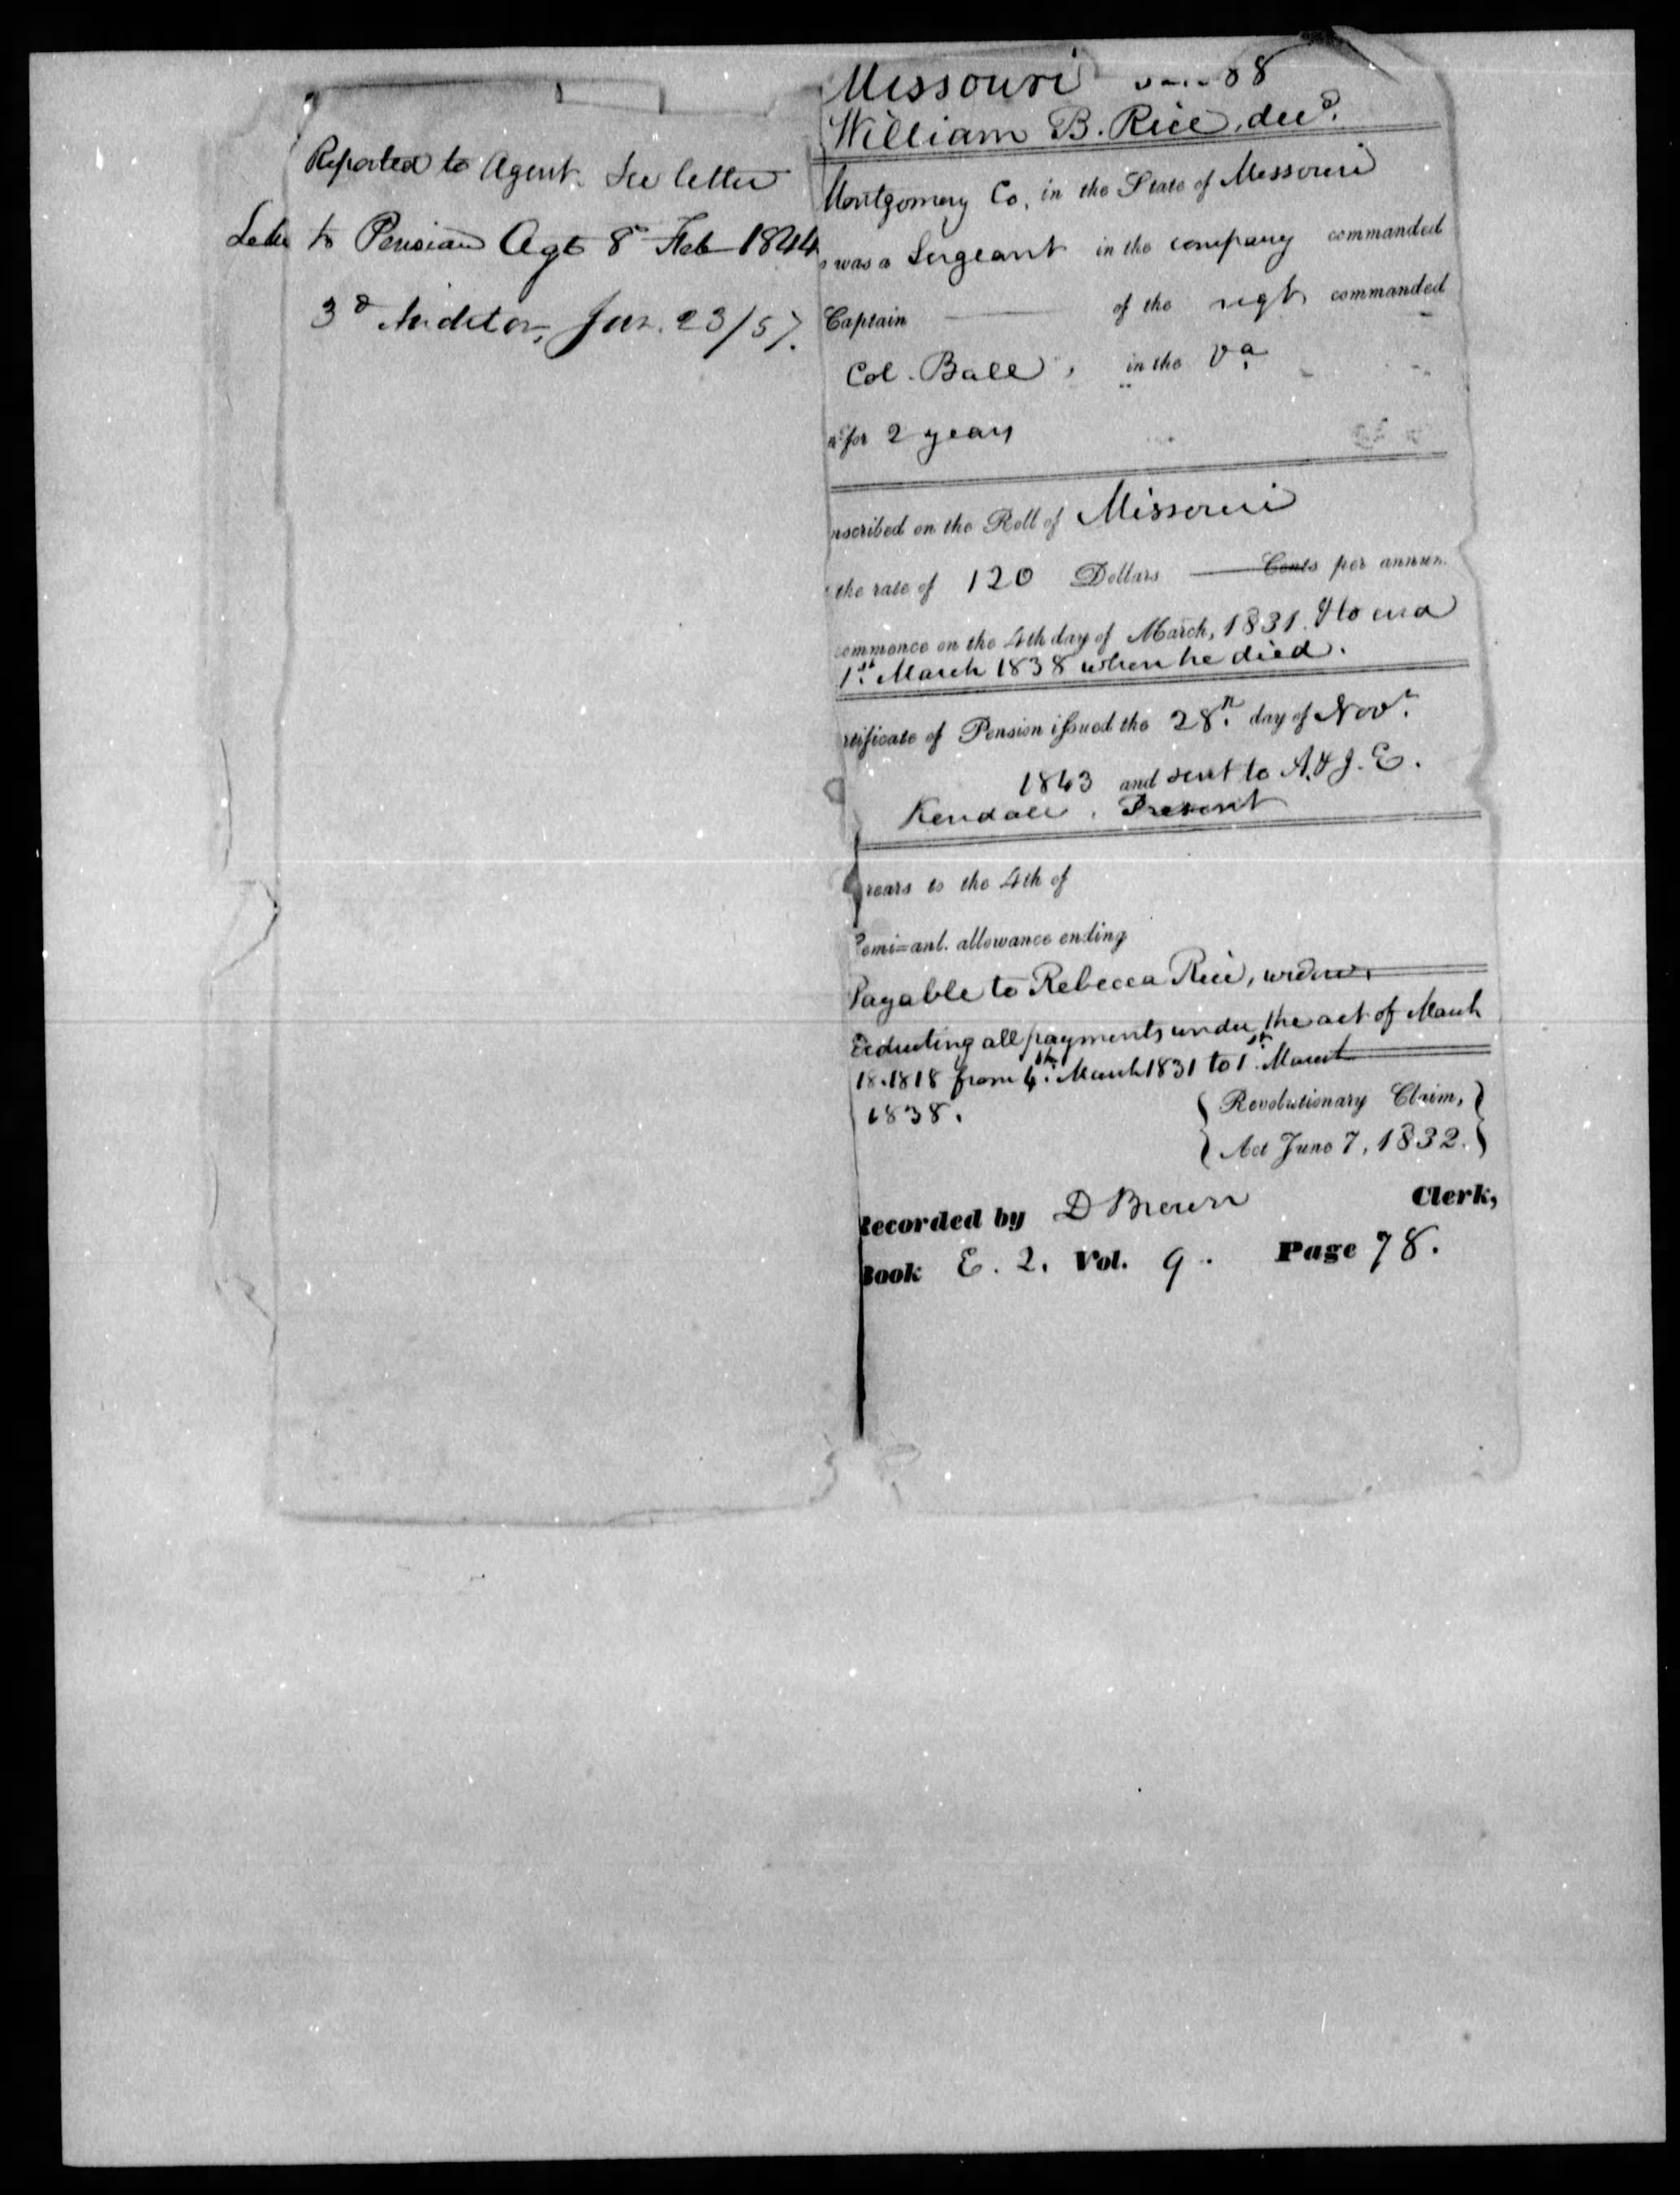 Reported to Agent. See letter
Letter to Pension Agt 8th Feb 1844
3d Auditor, Jan. 23/57.
Missouri
William B. Rice, decd.
Montgomery Co. in the State of Missouri
was a Sergeant in the company commanded
Captain —— of the regt commanded
Col. Ball, in the Va
for 2 years
nscribed on the Roll of Missouri
the rate of 120 Dollars —— Cents per annum
commence on the 4th day of March, 1831. & to end
1st March 1838 when he died.
rtificate of Pension issued the 28th day of Novr.
1843 and sent to A. & J. E.
Kendall, Present
rears to the 4th of
Semi-anl. allowance ending
Payable to Rebecca Rice, widow,
deducting all payments under the act of March
18. 1818 from 4th March 1831 to 1st March
1838.
{ Revolutionary Claim, }
{ Act June 7, 1832. }
Recorded by D Brown Clerk,
Book E. 2. Vol. 9. Page 78.